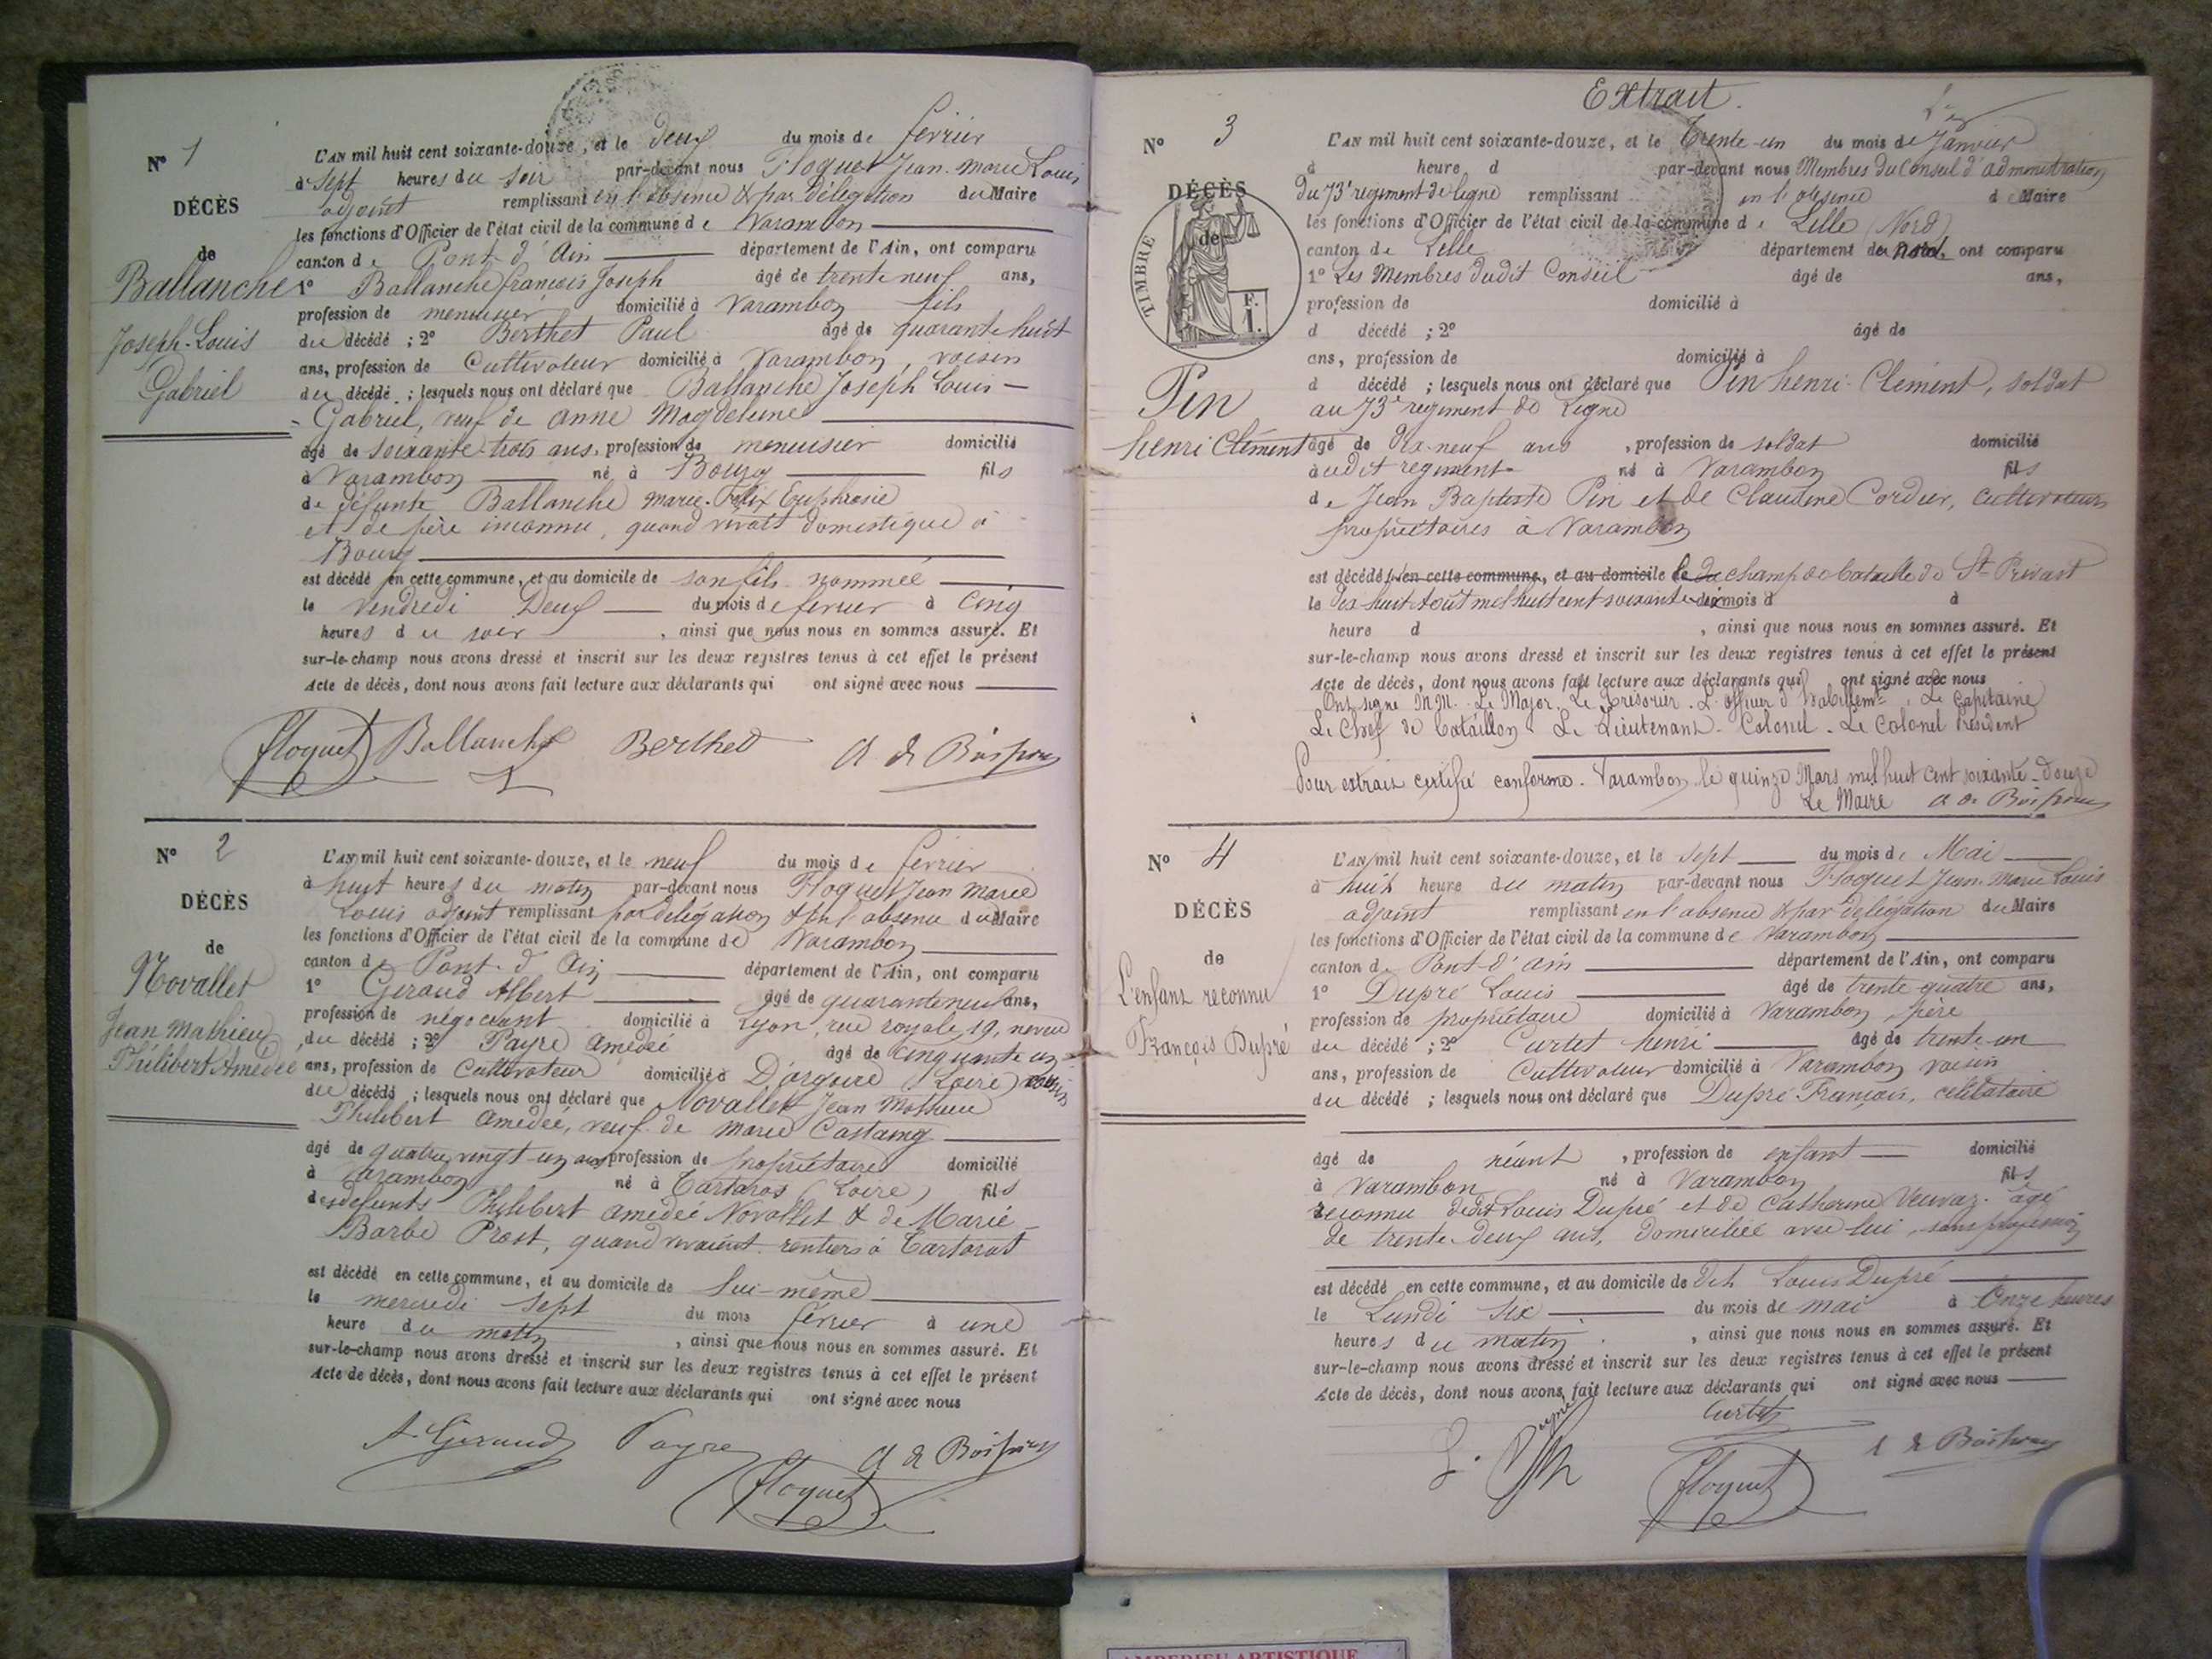 N° 1
DÉCÈS
de
Ballanche
Joseph-Louis
Gabriel
L'AN mil huit cent soixante-douze, et le deux du mois de février
à sept heures du soir par-devant nous Floquet Jean-Marie Louis
adjoint remplissant en l'absence & par délégation du Maire
les fonctions d'Officier de l'état civil de la commune de Varambon
canton de Pont-d'Ain département de l'Ain, ont comparu
1° Ballanche françois Joseph âgé de trente neuf ans,
profession de menuisier domicilié à Varambon fils
du décédé ; 2° Berthet Paul âgé de quarante huit
ans, profession de Cultivateur domicilié à Varambon, voisin
du décédé ; lesquels nous ont déclaré que Ballanche Joseph Louis
Gabriel, veuf de anne Magdeleine
âgé de soixante-trois ans, profession de menuisier domicilié
à Varambon né à Bourg fils
de défunte Ballanche Marie-Felix Euphrosie
et de père inconnu, quand vivait domestique à
Bourg
est décédé en cette commune, et au domicile de son fils nommée
le vendredi Deux du mois de février à Cinq
heures du soir, ainsi que nous nous en sommes assuré. Et
sur-le-champ nous avons dressé et inscrit sur les deux registres tenus à cet effet le présent
Acte de décès, dont nous avons fait lecture aux déclarants qui ont signé avec nous
Floquet Ballanche Berthet A de Boispreux
N° 2
DÉCÈS
de
Novallet
Jean Mathieu
Philibert Amédée
L'AN mil huit cent soixante-douze, et le neuf du mois de février
à huit heures du matin par-devant nous Floquet Jean Marie
Louis adjoint remplissant par délégation & en l'absence du Maire
les fonctions d'Officier de l'état civil de la commune de Varambon
canton de Pont-d'Ain département de l'Ain, ont comparu
1° Geraud Albert âgé de quarante neuf ans,
profession de négociant domicilié à Lyon, rue royale, 19, neveu
du décédé ; 2° Payre Amédée âgé de Cinquante un
ans, profession de Cultivateur domicilié à D'argoire (Loire)
du décédé ; lesquels nous ont déclaré que Novallet Jean Mathieu
Philibert Amédée, veuf de Marie Castaing
âgé de quatre vingt-un ans profession de propriétaire domicilié
à Varambon né à Tartaras (Loire) fils
des défunts Philibert amédée Novallet & de Marie
Barbe Prost, quand vivaient rentiers à Tartaras
est décédé en cette commune, et au domicile de lui-même
le mercredi sept du mois février à une
heure du matin, ainsi que nous nous en sommes assuré. Et
sur-le-champ nous avons dressé et inscrit sur les deux registres tenus à cet effet le présent
Acte de décès, dont nous avons fait lecture aux déclarants qui ont signé avec nous
A. Geraud Payre A de Boispreux
Floquet
Extrait.
N° 3
DÉCÈS
de
TIMBRE
F.
1.
Pin
henri Clément
L'AN mil huit cent soixante-douze, et le Trente-un du mois de Janvier
à heure d par-devant nous Membres du Conseil d'administration
du 73e régiment de ligne remplissant en l'absence d Maire
les fonctions d'Officier de l'état civil de la commune de Lille (Nord)
canton de Lille département de Nord, ont comparu
1° Les Membres dudit Conseil âgé de ans,
profession de domicilié à
d décédé ; 2° âgé de
ans, profession de domicilié à
d décédé ; lesquels nous ont déclaré que Pin henri-Clément, soldat
au 73e régiment de Ligne
âgé de dix-neuf ans, profession de soldat domicilié
audit régiment né à Varambon fils
de Jean Baptiste Pin et de Claudine Cordier, cultivateurs
propriétaires à Varambon
est décédé en cette commune, et au domicile de du champ de bataille de St Privast
le dix huit Août mil huit cent soixante-dix mois d à
heure d, ainsi que nous nous en sommes assuré. Et
sur-le-champ nous avons dressé et inscrit sur les deux registres tenus à cet effet le présent
Acte de décès, dont nous avons fait lecture aux déclarants qui ont signé avec nous
Ont signé MM. Le Major. Le Trésorier. L'officier d'habillemt. Le Capitaine
Le Chef de bataillon Le Lieutenant-Colonel. Le Colonel Président
Pour extrait certifié conforme. Varambon le quinze Mars mil huit cent soixante-douze
Le Maire A de Boispreux
N° 4
DÉCÈS
de
L'enfant reconnu
François Dupré
L'AN mil huit cent soixante-douze, et le sept du mois de Mai
à huit heure du matin par-devant nous Floquet Jean-Marie Louis
adjoint remplissant en l'absence & par délégation du Maire
les fonctions d'Officier de l'état civil de la commune de Varambon
canton de Pont-d'ain département de l'Ain, ont comparu
1° Dupré Louis âgé de trente quatre ans,
profession de propriétaire domicilié à Varambon, père
du décédé ; 2° Curtet henri âgé de trente-un
ans, profession de Cultivateur domicilié à Varambon voisin
du décédé ; lesquels nous ont déclaré que Dupré François, célibataire
âgé de néant, profession de enfant domicilié
à Varambon né à Varambon fils
reconnu dedit Louis Dupré et de Catherine âgé
de trente-deux ans, domiciliée avec lui, sans profession
est décédé en cette commune, et au domicile de dit Louis Dupré
le Lundi six du mois de mai à Onze heures
heures du matin, ainsi que nous nous en sommes assuré. Et
sur-le-champ nous avons dressé et inscrit sur les deux registres tenus à cet effet le présent
Acte de décès, dont nous avons fait lecture aux déclarants qui ont signé avec nous
Curtet
Floquet A de Boispreux
AMBERIEU ARTISTIQUE